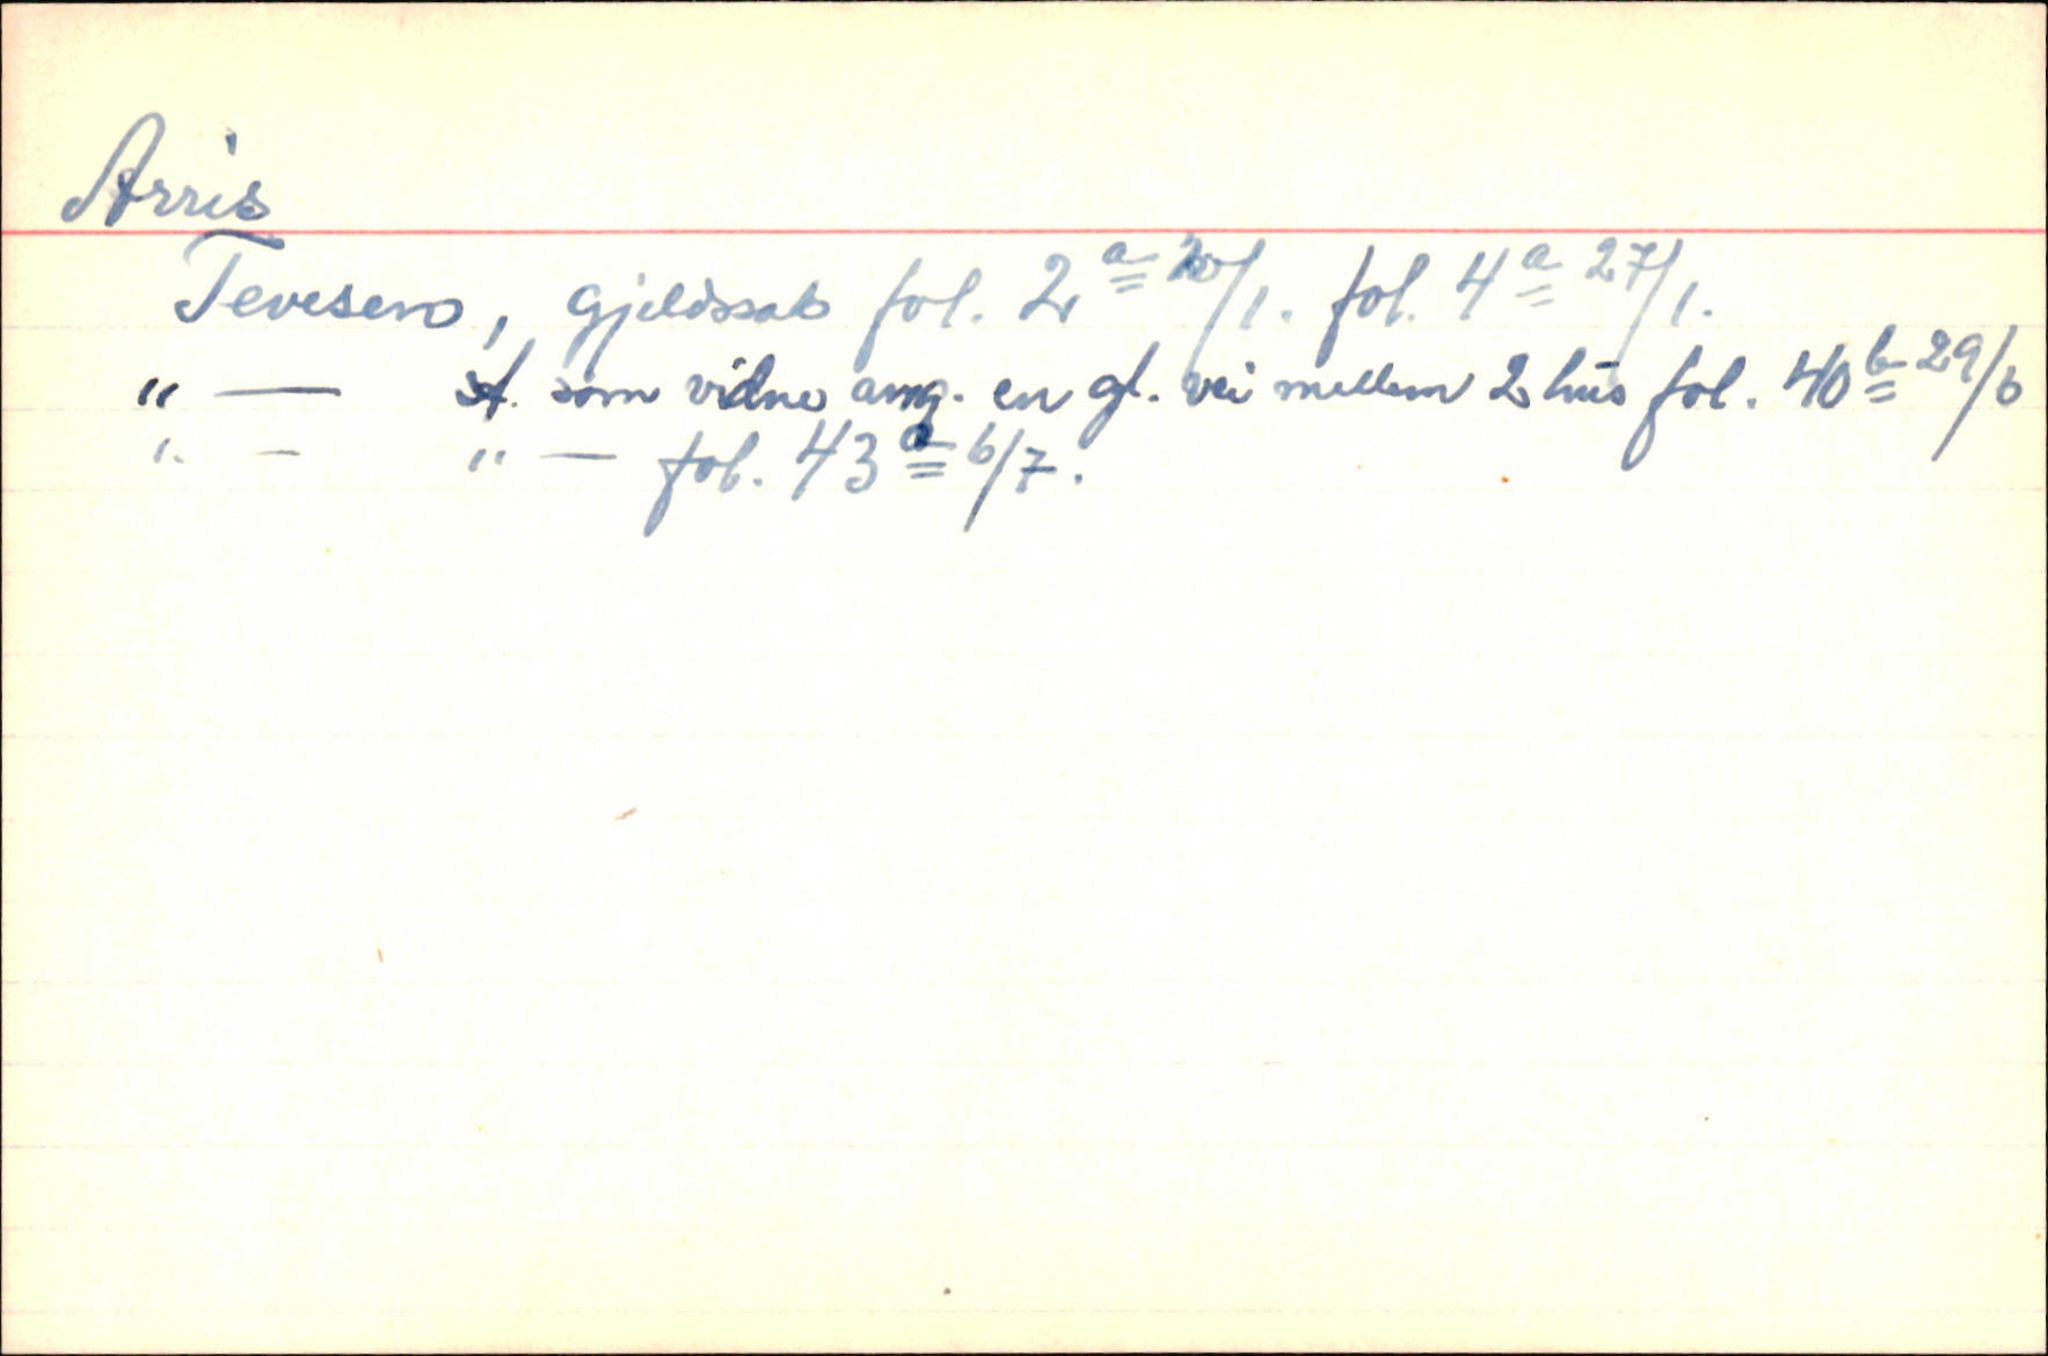 Arris
Tevesen, gjeldssak fol. 2 a 20/1. fol. 4 a 27/1.
" — A. som vidne ang. en gl. vei mellem 2 hus fol. 40 b 29/6
" - " — fol. 43 a 6/7.